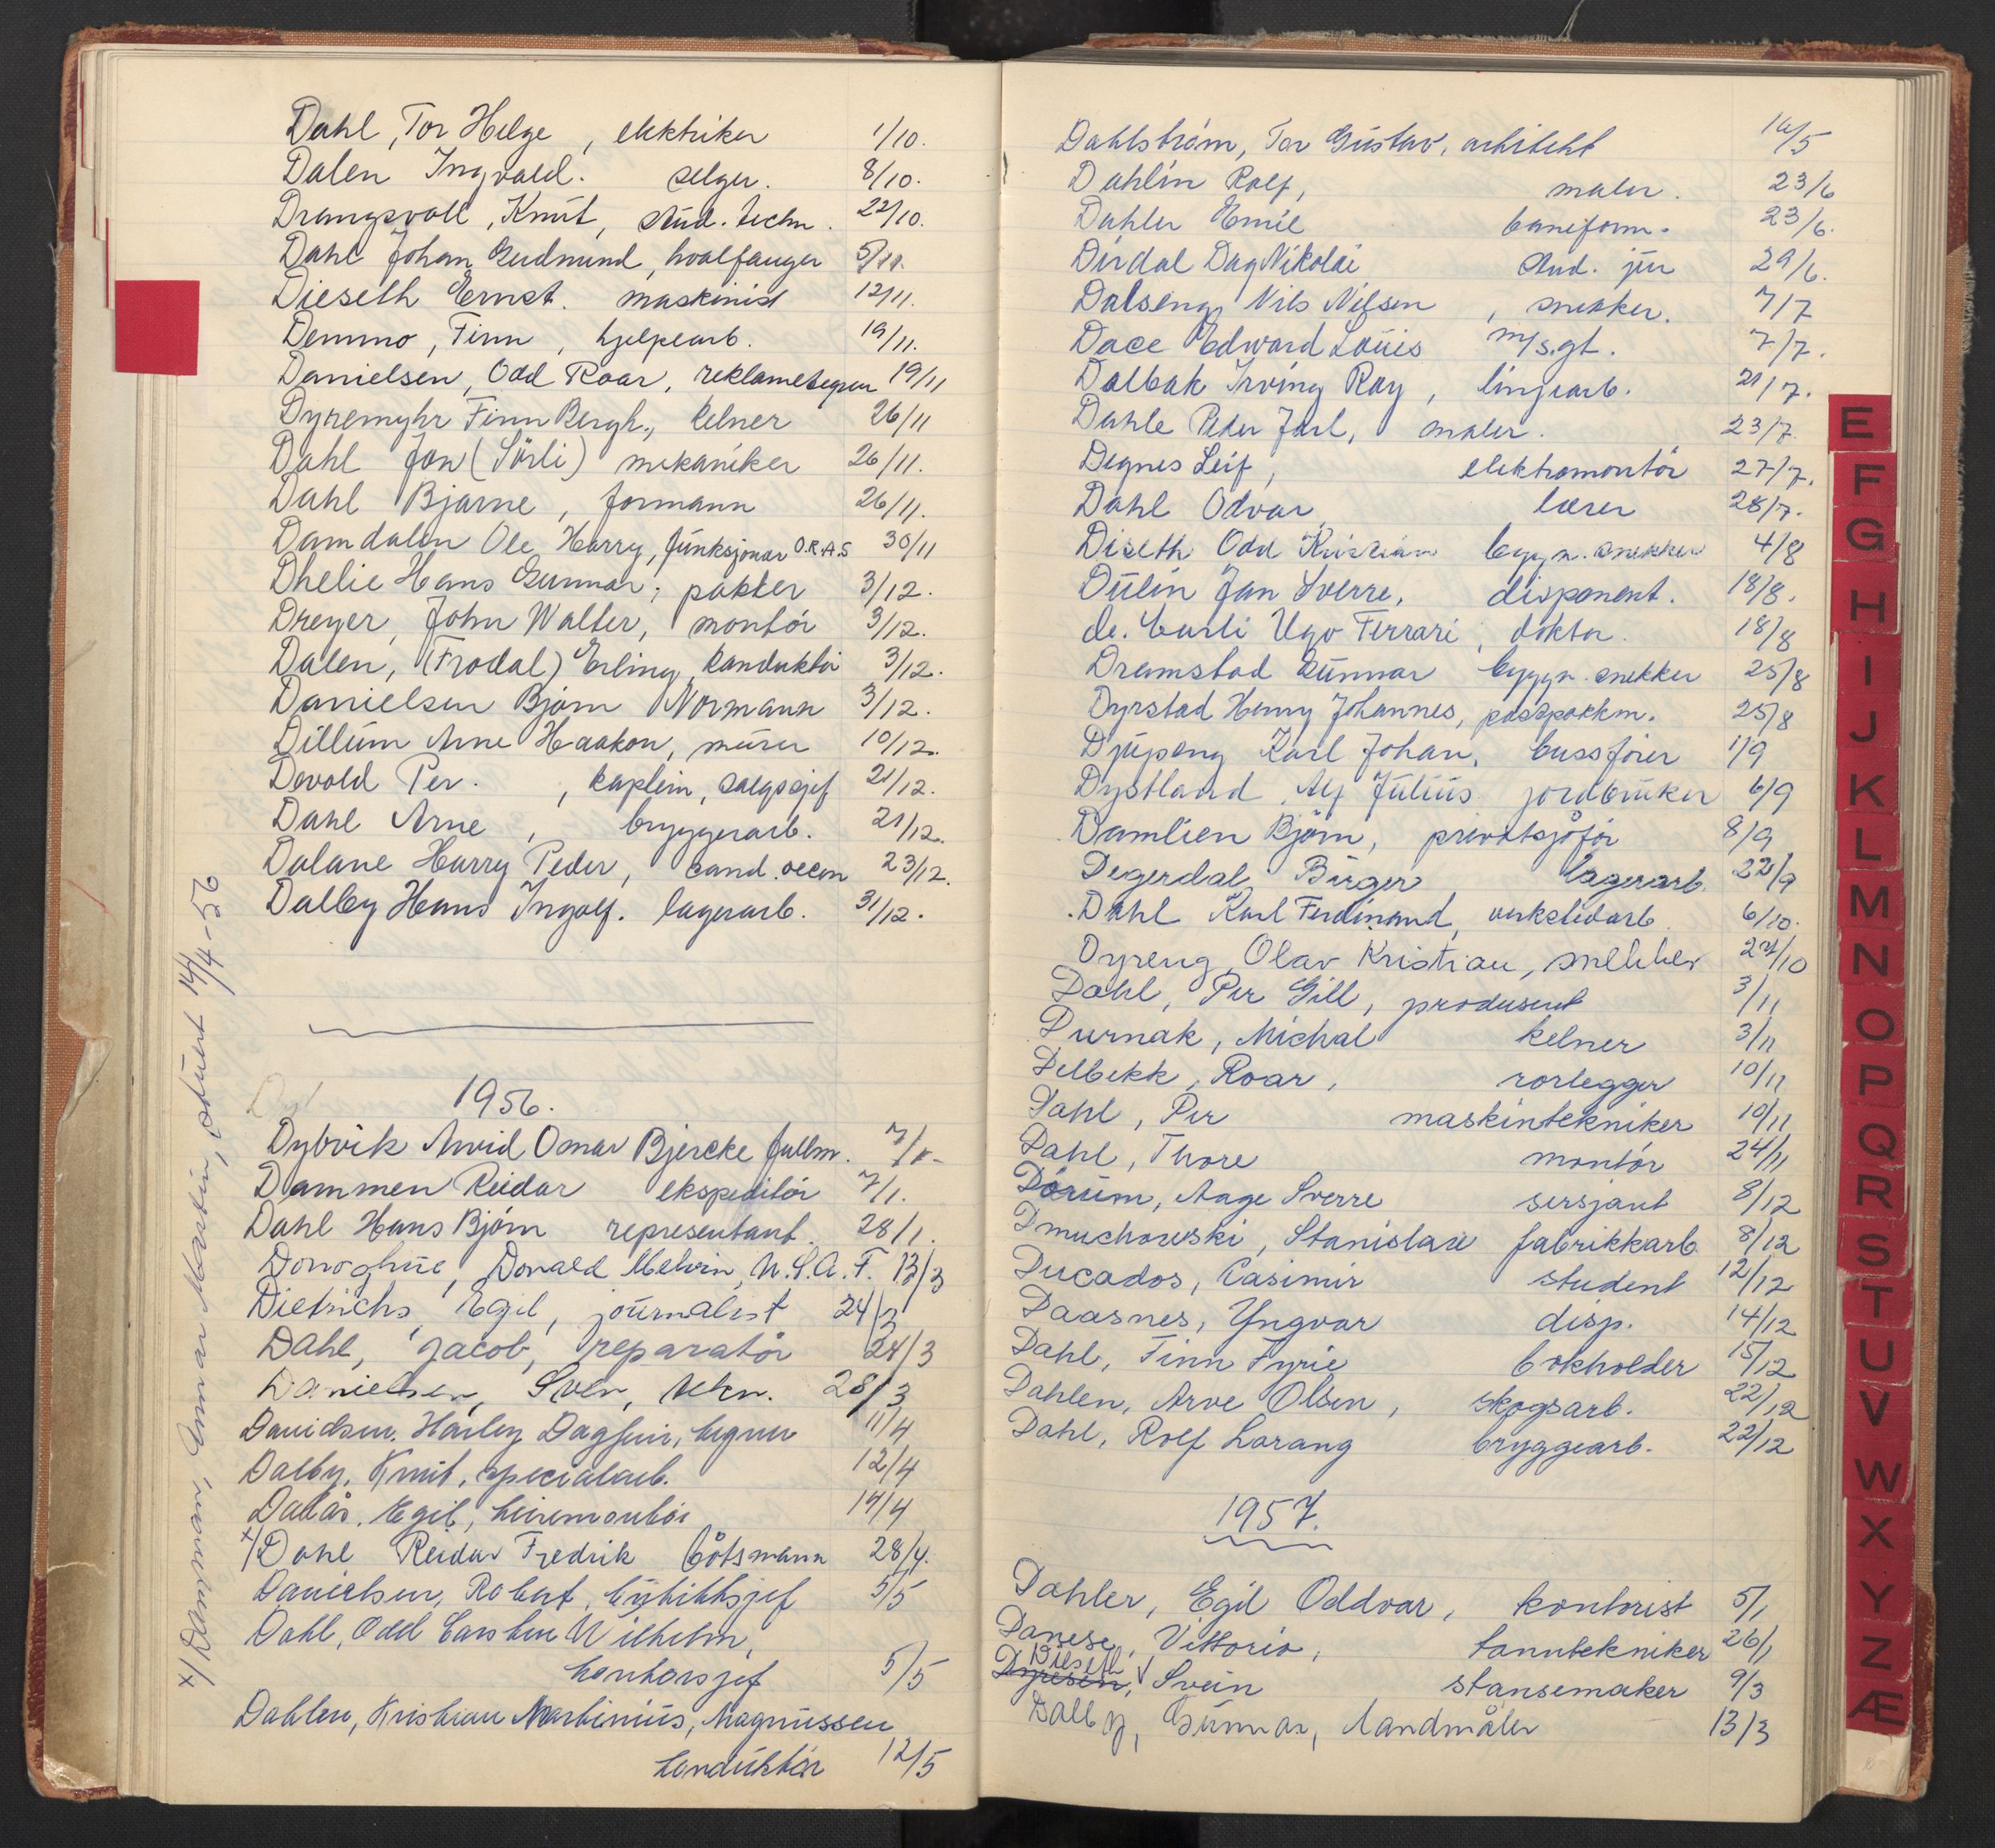 Dahl, Tor Helge, elektriker 1/10.
Dalen Ingvald. selger. 8/10.
Drangsvoll, Knut, stud. techn. 22/10.
Dahl Johan Gudmund, hvalfanger 5/11.
Dieseth Ernst. maskinist 12/11.
Demmo, Finn, hjelpearb. 19/11.
Danielsen, Odd Roar, reklametegner 19/11
Dyremyhr Finn Bergh., kelner 26/11
Dahl Jon (Sörli) mekaniker 26/11.
Dahl Bjarne, formann 26/11.
Damdalen Ole Harry, funksjonær O.R.A.S 30/11
Dhelie Hans Gunnar, pakker 3/12.
Dreyer, John Walter, montör 3/12.
Dalen, (Frodal) Erling konduktör 3/12.
Danielsen Björn Normann 3/12.
Dillum Arne Haakon, murer 10/12.
Devold Per., kaptein, salgssjef 21/12.
Dahl Arne, bryggerarb. 21/12.
Dalane Harry Peder, cand. oecon 23/12.
Dalby Hans Ingolf. lagerarb. 31/12.
1956.
Dybvik Arvid Omar Bjercke fullm. 7/1-
Dammen Reidar ekspeditör 7/1.
Dahl Hans Björn representant. 28/1.
Donoghue, Donald Melvin, U.S.A.F. 13/3
Dietrichs, Egil, journalist 24/3
Dahl, Jacob, reparatör 24/3
Danielsen, Sven, tekn. 28/3
Davidsen, Harley Dagfinn, tegner 11/4
Dalby, Knut, specialarb. 12/4
Dalås, Egil, heismontör 14/4
x/ Dahl Reidar Fredrik båtsmann 28/4.
Danielsen, Robert, butikksjef 5/5
Dahl, Odd Carsten Wilhelm,
kontorsjef 5/5
Dahlen, Kristian Martinius, Magnussen
konduktör 12/5
x/ Dammann, Gunnar Martin, 14/4-56
Dahlström, Tor Gustav, arkitekt 14/5
Dahlin Rolf, maler. 23/6
Dahler Emil baneform. 23/6.
Dirdal Dag Nikolai stud. jur 29/6.
Dalseng, Nils Nilsen, snekker. 7/7
Dace Edward Louis m/sgt. 7/7.
Dalbak Irving Ray, linjearb. 21/7.
Dahle Peder Jarl, maler. 23/7.
Degnes Leif, elektromontör 27/7.
Dahl Odvar lærer 28/7.
Diseth Odd Kristian bygn. snekker 4/8
Dulin Jan Sverre, disponent. 18/8.
de. Carli Ugo Ferrari, doktor. 18/8
Dramstad Gunnar bygn. snekker 25/8
Dyrstad Henny Johannes, postpakkm. 25/8
Djupeng Karl Johan, bussförer 1/9
Dystland, Alf Julius jordbruker 6/9
Damlien Björn, privatsjåför 8/9
Degerdal Birger, lagerarb. 22/9
Dahl Karl Ferdinand, verkstedarb. 6/10.
Dyreng Olav Kristian, snekker 27/10
Dahl, Per Gill, produsent 3/11
Durnak, Michal kelner 3/11
Delbekk, Roar, rørlegger 10/11
Dahl, Per maskintekniker 10/11
Dahl, Thore montör 24/11
Dörum, Aage Sverre sersjant 8/12
Dmuchowski, Stanislaw fabrikkarb. 8/12
Ducados, Casimir student 12/12
Daasnes, Yngvar disp. 14/12
Dahl, Finn Fyrie bokholder 15/12
Dahlen, Arve Olsen, skogsarb. 22/12
Dahl, Rolf Larang bryggearb. 22/12
1957.
Dahler, Egil Oddvar, kontorist 5/1
Danese, Vittorio, tanntekniker 26/1
Dieseth
Dyresen, Svein stansemaker 9/3
Dalby, Gunnar, landmåler 13/3
E
F
G
H
I
J
K
L
M
N
O
P
Q
R
S
T
U
V
W
X
Y
Z
Æ